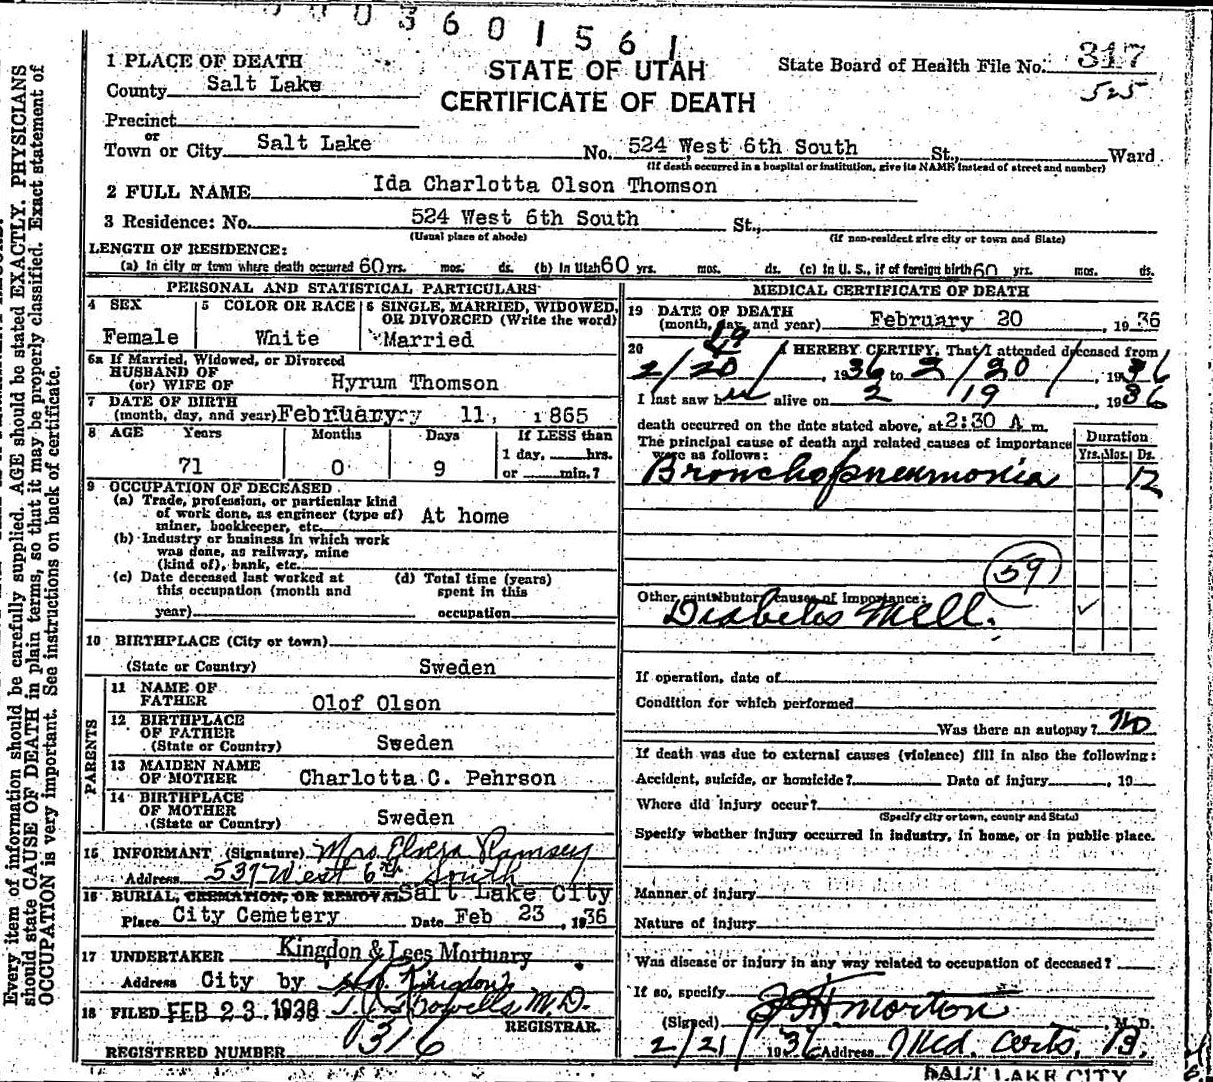 0003601561
1 PLACE OF DEATH
STATE OF UTAH
CERTIFICATE OF DEATH
State Board of Health File No. 317
525
County Salt Lake
Precinct
or
Town or City Salt Lake No. 524 West 6th South St., Ward
(If death occurred in a hospital or institution, give its NAME instead of street and number)
2 FULL NAME Ida Charlotta Olson Thomson
3 Residence: No. 524 West 6th South St.,
(Usual place of abode) (If non-resident give city or town and State)
LENGTH OF RESIDENCE:
(a) In city or town where death occurred 60 yrs. mos. ds. (b) In Utah 60 yrs. mos. ds. (c) In U. S., if of foreign birth 60 yrs. mos. ds.
PERSONAL AND STATISTICAL PARTICULARS
4 SEX Female
5 COLOR OR RACE White
6 SINGLE, MARRIED, WIDOWED, OR DIVORCED (Write the word) Married
6a If Married, Widowed, or Divorced
HUSBAND OF
(or) WIFE OF Hyrum Thomson
7 DATE OF BIRTH
(month, day, and year) Februaryry 11, 1865
8 AGE Years Months Days If LESS than
1 day, hrs.
71 0 9 or min.?
9 OCCUPATION OF DECEASED
(a) Trade, profession, or particular kind
of work done, as engineer (type of)
miner, bookkeeper, etc. At home
(b) Industry or business in which work
was done, as railway, mine
(kind of), bank, etc.
(c) Date deceased last worked at
this occupation (month and
year)
(d) Total time (years)
spent in this
occupation
10 BIRTHPLACE (City or town)
(State or Country) Sweden
PARENTS
11 NAME OF
FATHER Olof Olson
12 BIRTHPLACE
OF FATHER
(State or Country) Sweden
13 MAIDEN NAME
OF MOTHER Charlotta C. Pehrson
14 BIRTHPLACE
OF MOTHER
(State or Country) Sweden
15 INFORMANT (Signature) Mrs Elvera Ramsey
Address 537 West 6th South
16 BURIAL, CREMATION, OR REMOVAL Salt Lake City
Place City Cemetery Date Feb 23, 1936
17 UNDERTAKER Kingdon & Lees Mortuary
Address City by Kingdon
18 FILED FEB 23 1936 M.D.
REGISTRAR.
REGISTERED NUMBER 0316
MEDICAL CERTIFICATE OF DEATH
19 DATE OF DEATH
(month, day, and year) February 20, 1936
20 I HEREBY CERTIFY, That I attended deceased from
19
2/20/, 1936 to 2/20/, 1936
I last saw alive on 2 / 19, 1936
death occurred on the date stated above, at 2:30 A m.
The principal cause of death and related causes of importance
were as follows:
Duration
Yrs. Mos. Ds.
Bronchopneumonia 12
59
Other contributory causes of importance:
Diabetes Mell.
If operation, date of
Condition for which performed
Was there an autopsy? no
If death was due to external causes (violence) fill in also the following:
Accident, suicide, or homicide? Date of injury, 19
Where did injury occur?
(Specify city or town, county and State)
Specify whether injury occurred in industry, in home, or in public place.
Manner of injury
Nature of injury
Was disease or injury in any way related to occupation of deceased?
If so, specify
(Signed) Morton M. D.
2/21/1936 Address Med. Arts. B.
SALT LAKE CITY
Every item of information should be carefully supplied. AGE should be stated EXACTLY. PHYSICIANS
should state CAUSE OF DEATH in plain terms, so that it may be properly classified. Exact statement of
OCCUPATION is very important. See instructions on back of certificate.